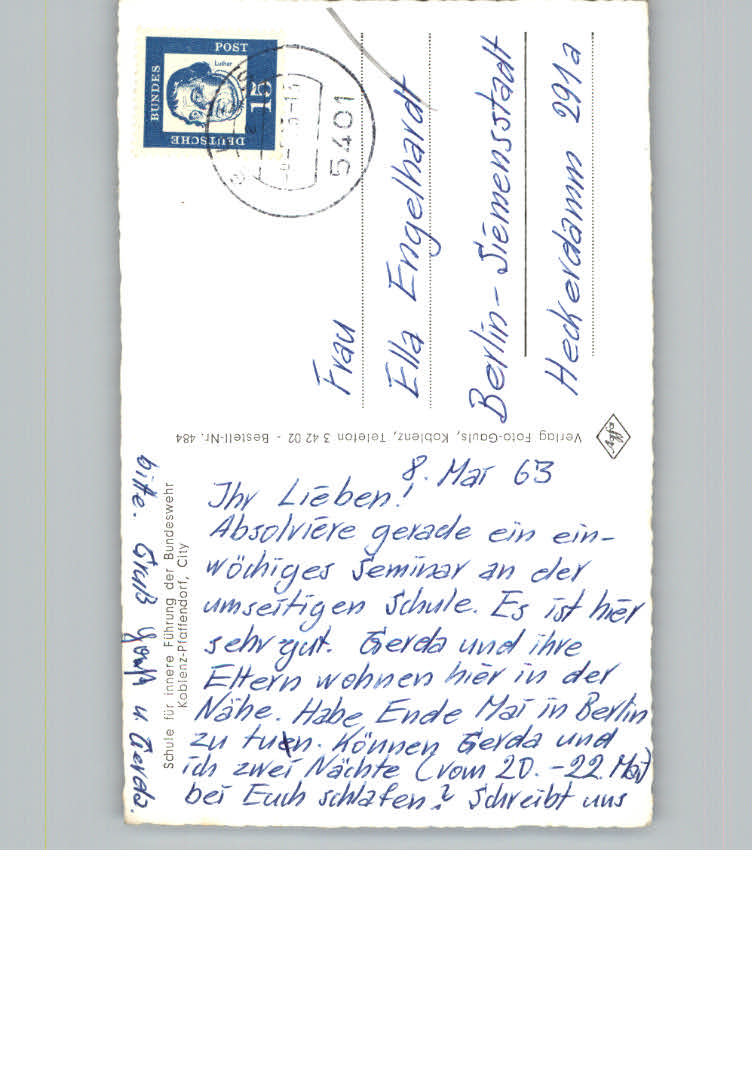 DEUTSCHE
BUNDES
POST
Luther
15
5401
Frau
Ella Engelhardt
Berlin-Siemensstadt
Heckerdamm 291a
Verlag Foto-Gauls, Koblenz, Telefon 3 42 02 - Bestell-Nr. 484
Agfa
Schule für innere Führung der Bundeswehr
Koblenz-Pfaffendorf, City
8. Mai 63
Ihr Lieben!
Absolviere gerade ein ein-
wöchiges Seminar an der
umseitigen Schule. Es ist hier
sehr gut. Gerda und ihre
Eltern wohnen hier in der
Nähe. Habe Ende Mai in Berlin
zu tun. Können Gerda und
ich zwei Nächte (vom 20.-22. Mai)
bei Euch schlafen? Schreibt uns
bitte. Gruß u. Gerda.